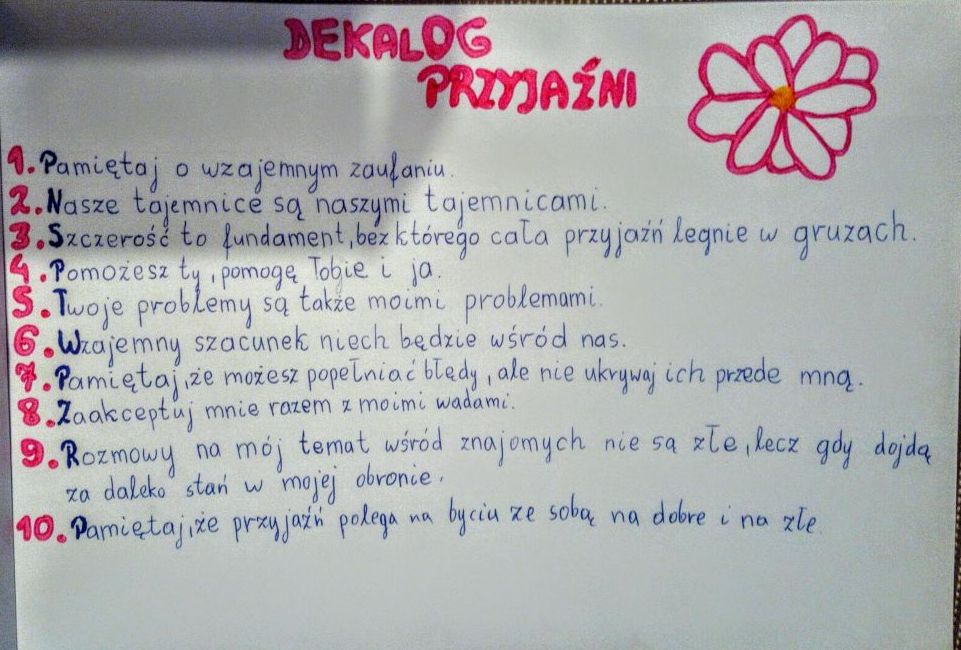 DEKALOG
PRZYJAŹNI
1. Pamiętaj o wzajemnym zaufaniu.
2. Nasze tajemnice są naszymi tajemnicami.
3. Szczerość to fundament, bez którego cała przyjaźń legnie w gruzach.
4. Pomożesz ty, pomogę Tobie i ja.
5. Twoje problemy są także moimi problemami.
6. Wzajemny szacunek niech będzie wśród nas.
7. Pamiętaj, że możesz popełniać błędy, ale nie ukrywaj ich przede mną.
8. Zaakceptuj mnie razem z moimi wadami.
9. Rozmowy na mój temat wśród znajomych nie są złe, lecz gdy dojdą
za daleko stań w mojej obronie.
10. Pamiętaj, że przyjaźń polega na byciu ze sobą na dobre i na złe.